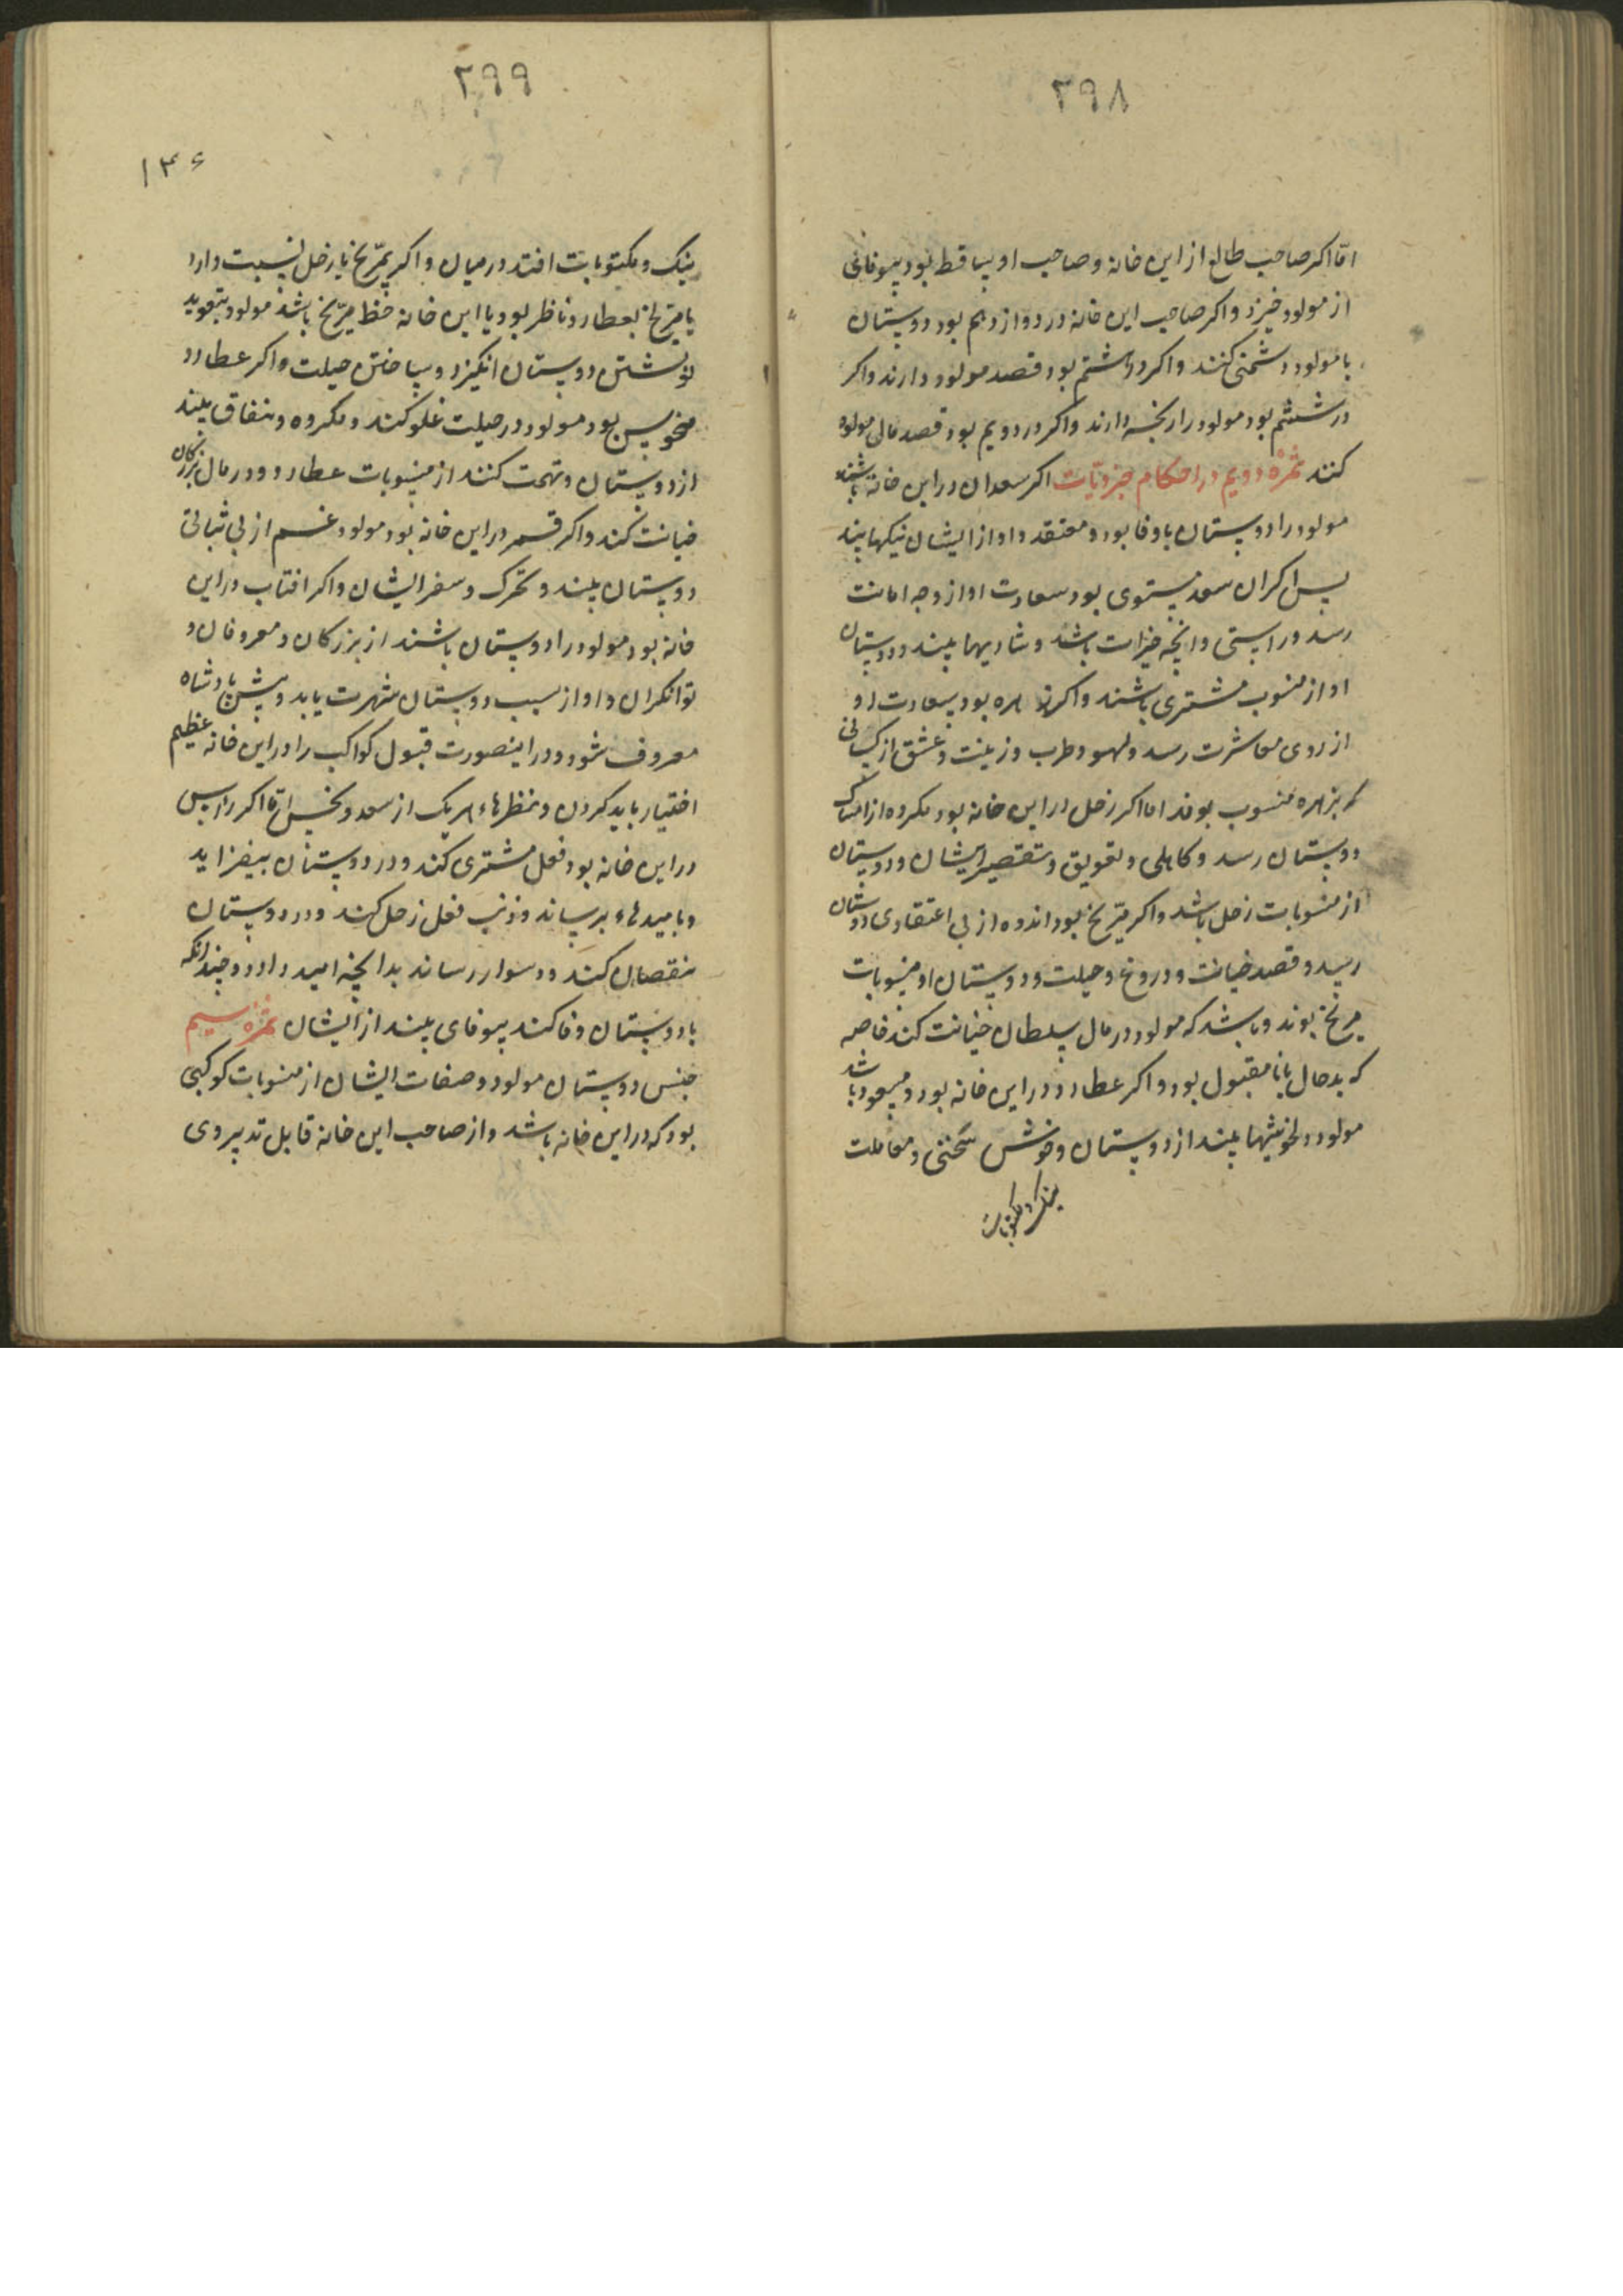 ۲۹۸
اما اکر صاحب طالع از این خانه و صاحب او ساقط بود بیوفائی
از مولود خیزد و اکر صاحب این خانه در دوازدهم بود دوستان
با مولود دشمنی کنند و اکر در هشتم بود قصد مولود دارند و اکر
در ششم بود مولود را رنجه دارند و اکر در دویم بود قصد مال مولود
کنند ثمره دویم در احکام جزویات اکر سعدان در این خانه باشند
مولود را دوستان باوفا بود و معتقد و او از ایشان نیکیها بیند
پس اکر ان سعد مشتری بود سعادت او از وجه امانت
رسد و راستی و انچه خیرات باشد و شادیها بیند و دوستان
او از منسوب مشتری باشند و اکر زهره بود سعادت او
از روی معاشرت رسد و لهو و طرب و زینت و عشق از کسانی
که بزهره منسوب بوند اما اکر زحل در این خانه بود مکروه از امساک
دوستان رسد و کاهلی و تعویق و تقصیر ایشان و دوستان
از منسوبات زحل باشد و اکر مریخ بود اندوه از بی اعتقادی دوستان
رسد و قصد خیانت و دروغ و حیلت و دوستان او منسوبات
مریخ بوند و باشد که مولود در مال سلطان خیانت کند خاصه
که بدحال یا نامقبول بود و اکر عطارد در این خانه بود و مسعود باشد
مولود دلخوشیها بیند از دوستان و خوش سخنی و معاملت
نیک و مکتوبات
۲۹۹
۱۳۶
نیک و مکتوبات افتد در میان و اکر بمریخ یا زحل نسبت دارد
یا مریخ بعطارد ناظر بود یا این خانه حظ مریخ باشد مولود بتعوید
نوشتن دوستان انکیزد و ساختن حیلت و اکر عطارد
منحوس بود مولود در حیلت غلو کند و مکروه و نفاق بیند
از دوستان و تهمت کنند از منسوبات عطارد و در مال بزرکان
خیانت کند و اکر قمر در این خانه بود مولود غم از بی ثباتی
دوستان بیند و تحرک و سفر ایشان و اکر افتاب در این
خانه بود مولود را دوستان باشند از بزرکان و معروفان و
توانکران و او از سبب دوستان شهرت یابد و پیش پادشاه
معروف شود و در اینصورت قبول کواکب را در این خانه عظیم
اختیار باید کردن و نظرهاء هریک از سعد و نحس اما اکر راس
در این خانه بود فعل مشتری کند و در دوستان بیفزاید
و بامیدهاء برساند و ذنب فعل زحل کند و در دوستان
نقصان کند و دشوار رساند بدانچه امید دارد و چندانکه
با دوستان وفا کند بیوفای بیند از ایشان ثمره سیم
جنس دوستان مولود و صفات ایشان از منسوبات کوکبی
بود که در این خانه باشد و از صاحب این خانه قابل تدبیر وی